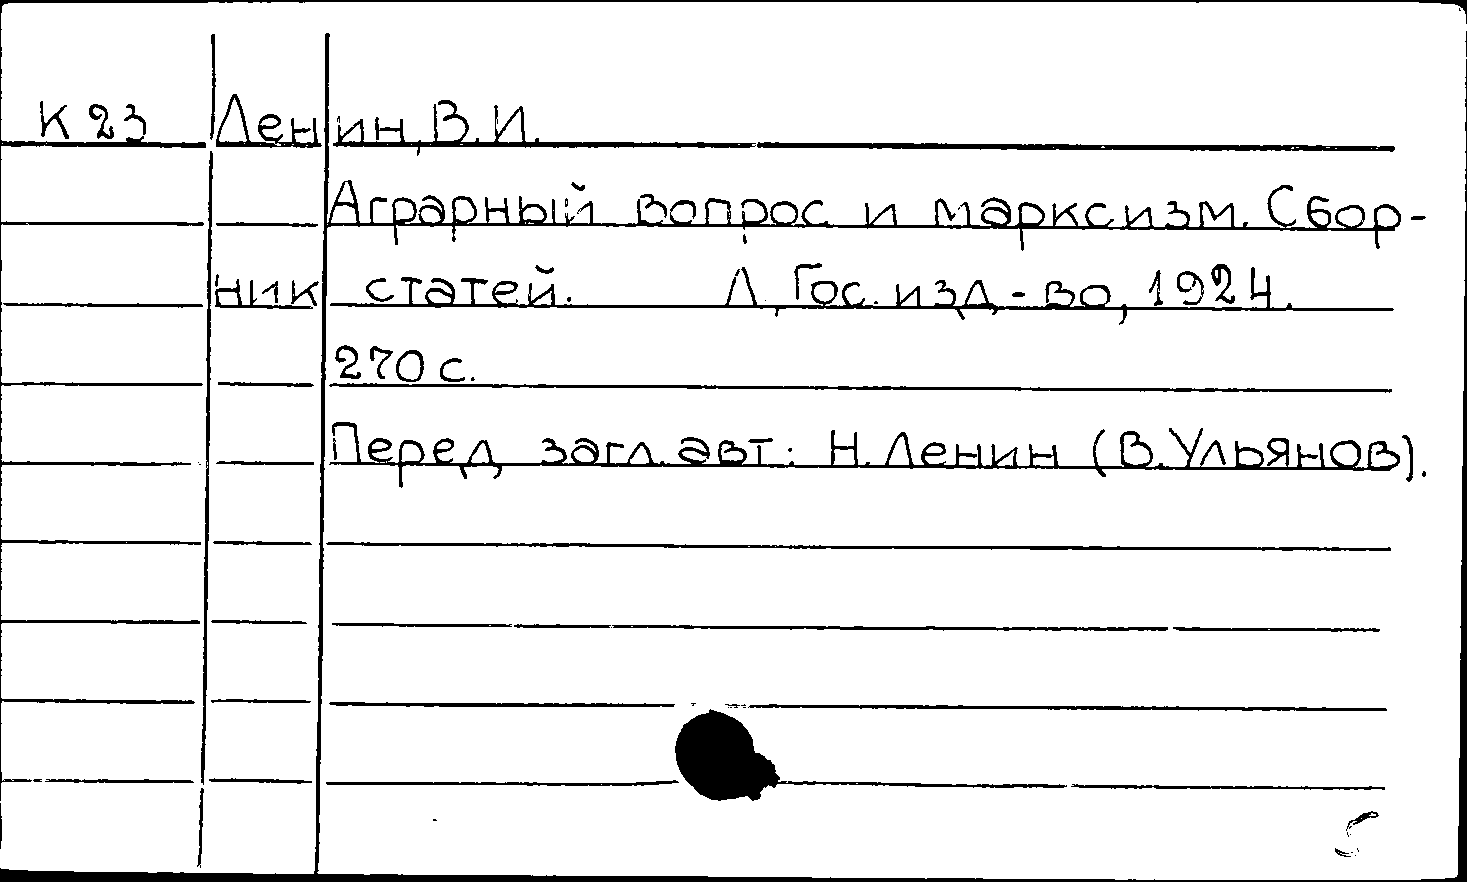 К 23 Ленин, В. И.
Аграрный вопрос и марксизм. Сбор-
ник статей. Л, Гос. изд-во, 1924.
270 с.
Перед загл. авт.: Н. Ленин (В. Ульянов).
5